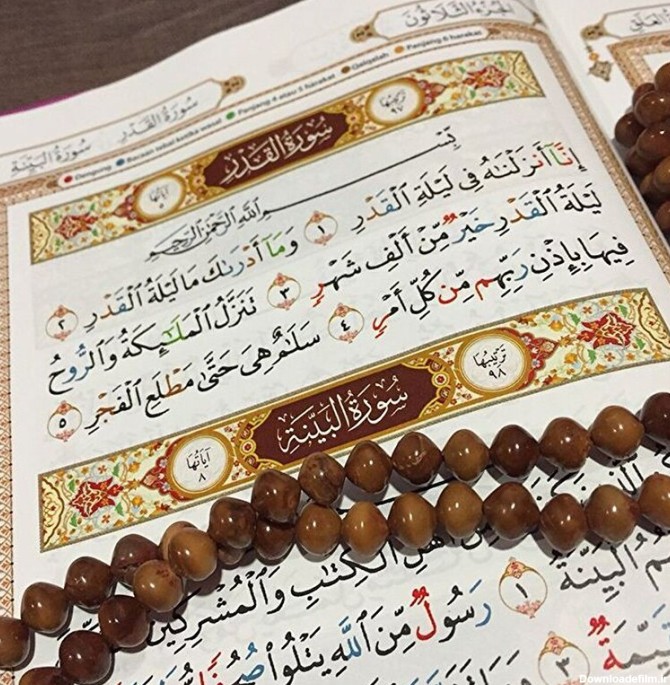 الْجُزْءُ الثَّلَاثُوْنَ
سُوْرَةُ الْقَدْرِ سُوْرَةُ الْبَيِّنَةِ
Dengung Bacaan tebal ketika wasal Panjang 4 atau 5 harakat Qalqalah Panjang 6 harakat
تَرْتِيْبُهَا ٩٧ سُوْرَةُ الْقَدْرِ آيَاتُهَا ٥
بِسْمِ اللّٰهِ الرَّحْمٰنِ الرَّحِيْمِ
إِنَّآ أَنزَلْنَٰهُ فِى لَيْلَةِ ٱلْقَدْرِ ١ وَمَآ أَدْرَىٰكَ مَا لَيْلَةُ ٱلْقَدْرِ ٢
لَيْلَةُ ٱلْقَدْرِ خَيْرٌ مِّنْ أَلْفِ شَهْرٍ ٣ تَنَزَّلُ ٱلْمَلَٰٓئِكَةُ وَٱلرُّوحُ
فِيهَا بِإِذْنِ رَبِّهِم مِّن كُلِّ أَمْرٍ ٤ سَلَٰمٌ هِىَ حَتَّىٰ مَطْلَعِ ٱلْفَجْرِ ٥
تَرْتِيْبُهَا ٩٨ سُوْرَةُ الْبَيِّنَةِ آيَاتُهَا ٨
أَهْلِ ٱلْكِتَٰبِ وَٱلْمُشْرِكِينَ
ٱلْبَيِّنَةُ ١ رَسُولٌ مِّنَ ٱللَّهِ يَتْلُوا۟
٣
Downloadefilm.ir